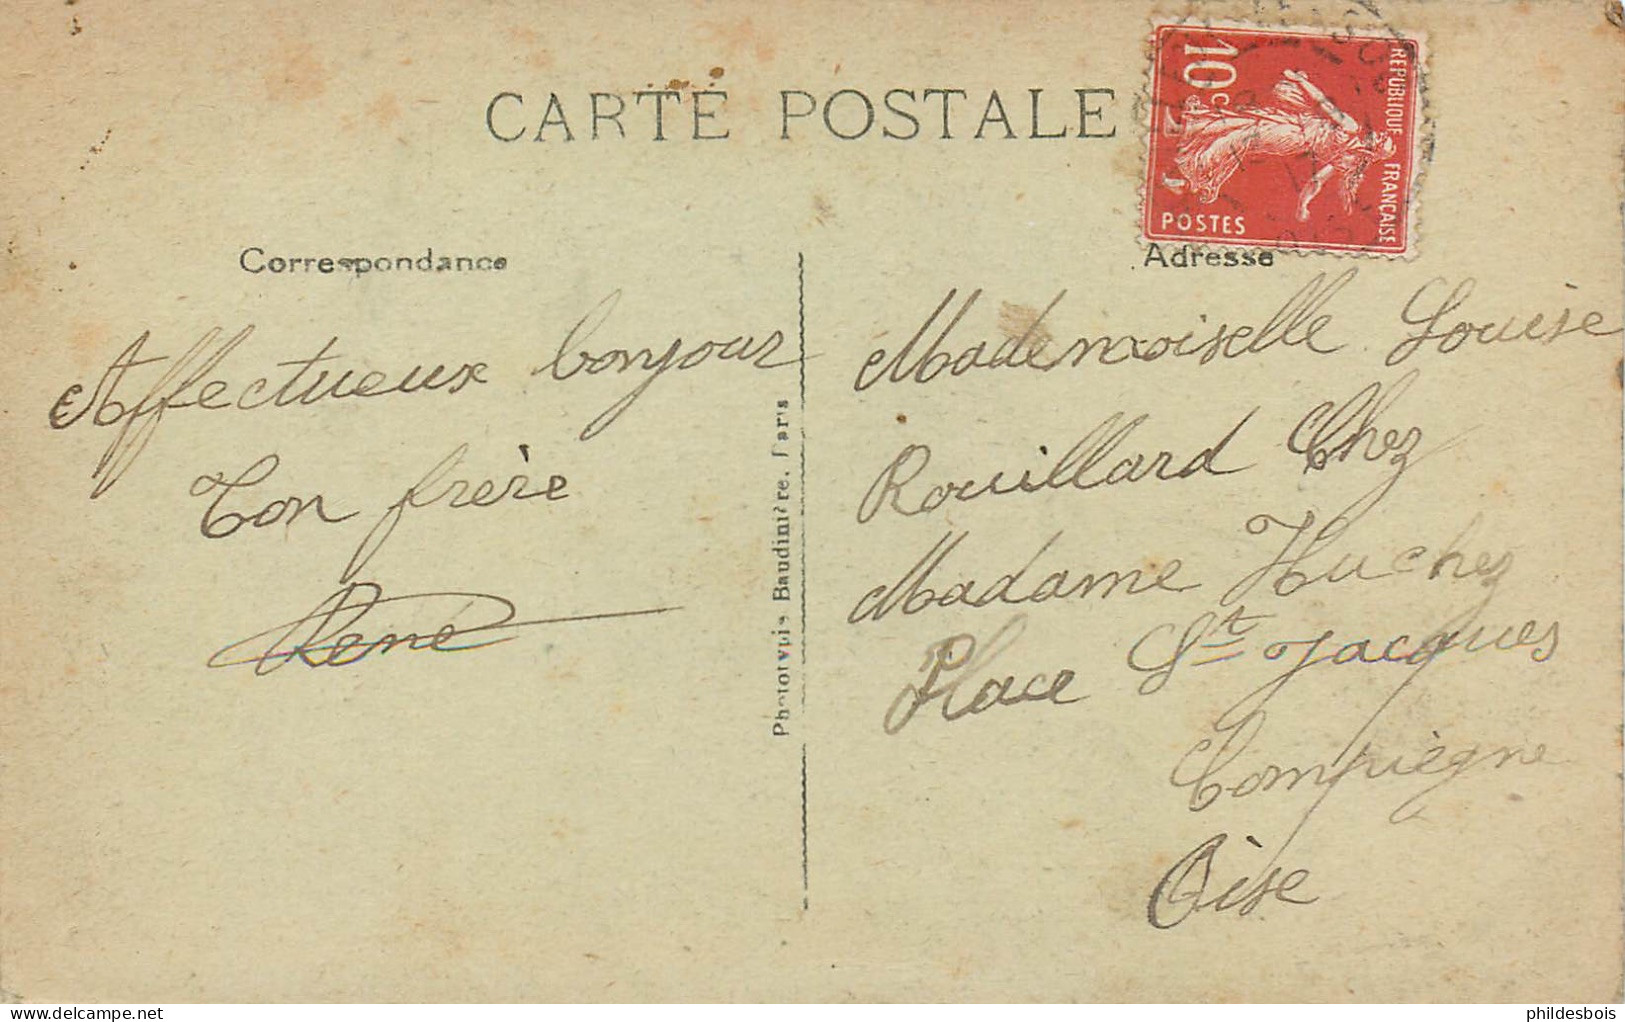 CARTE POSTALE
10c
REPUBLIQUE FRANÇAISE
POSTES
Correspondance
Adresse
Affectueux bonjour
Ton frère
René
Phototypie Baudinière, Paris
Mademoiselle Louise
Rouillard Chez
Madame Huchez
Place St Jacques
Compiègne
Oise
phildesbois